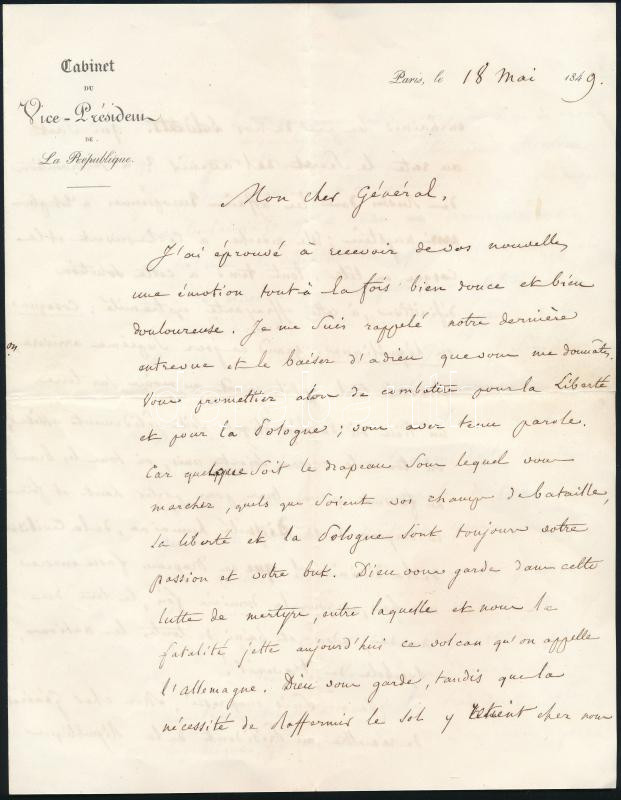 Cabinet
DU
Vice-Président
DE
La République.
Paris, le 18 Mai 1849.
Mon cher Général,
J'ai éprouvé à recevoir de vos nouvelles
une émotion tout à la fois bien douce et bien
douloureuse. Je me suis rappelé notre dernière
entrevue et le baiser d'adieu que vous me donnâtes.
Vous promettiez alors de combattre pour la Liberté
et pour la Pologne ; vous avez tenu parole.
Car quelque soit le drapeau sous lequel vous
marchez, quels que soient vos champs de bataille,
la liberté et la Pologne sont toujours votre
passion et votre but. Dieu vous garde dans cette
lutte de martyrs, entre laquelle et nous la
fatalité jette aujourd'hui ce volcan qu'on appelle
l'allemagne. Dieu vous garde, tandis que la
nécessité de raffermir le sol y retient chez nous